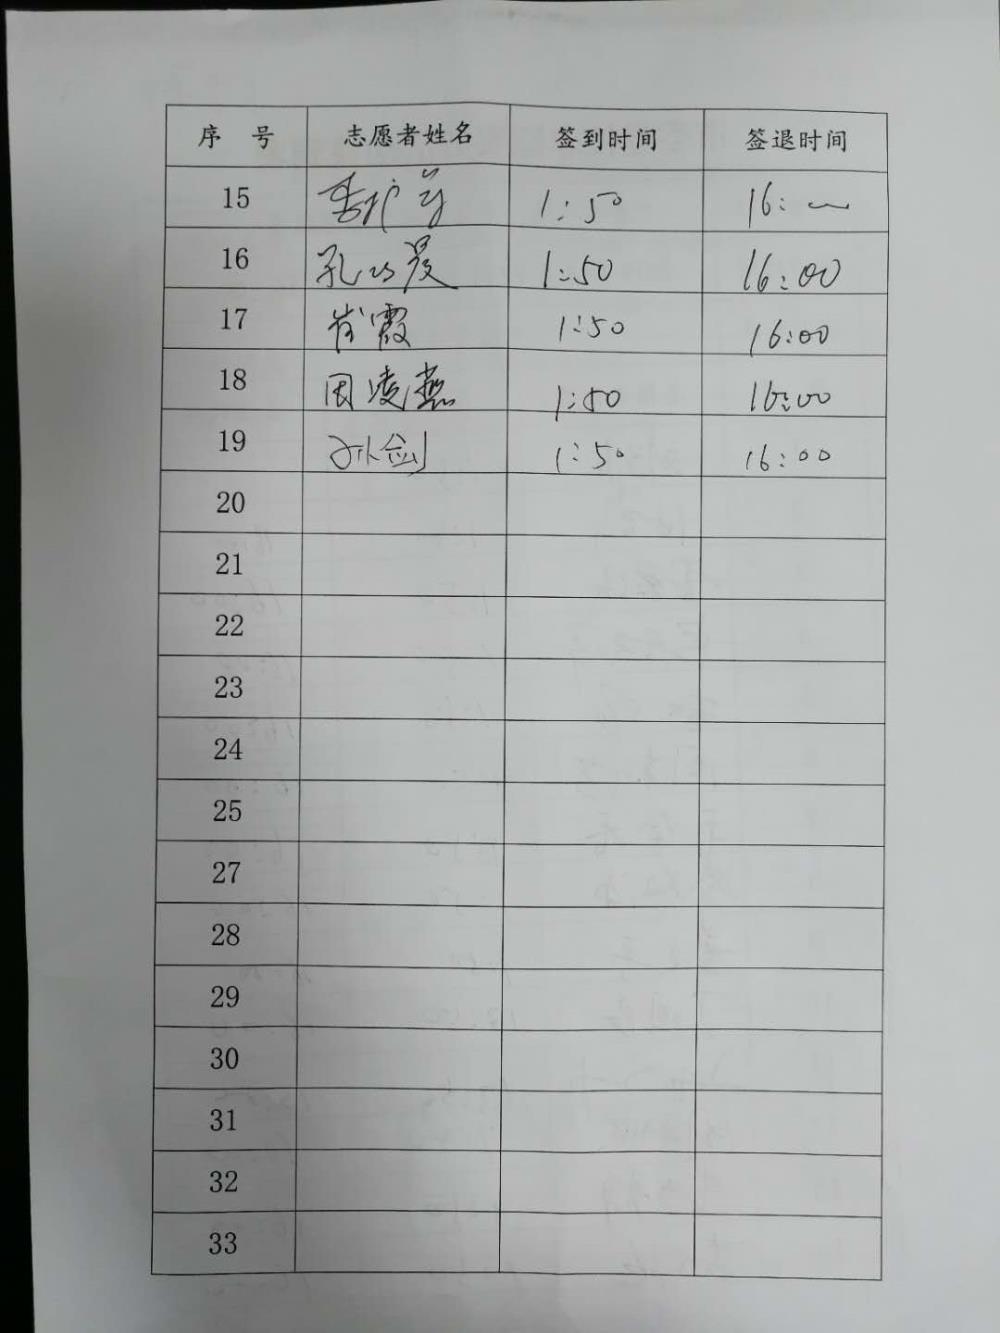 序 号 志愿者姓名 签到时间 签退时间
15 1:50 16:
16 孔 晨 1:50 16:00
17 崔霞 1:50 16:00
18 周凌燕 1:50 16:00
19 孙剑 1:50 16:00
20
21
22
23
24
25
27
28
29
30
31
32
33